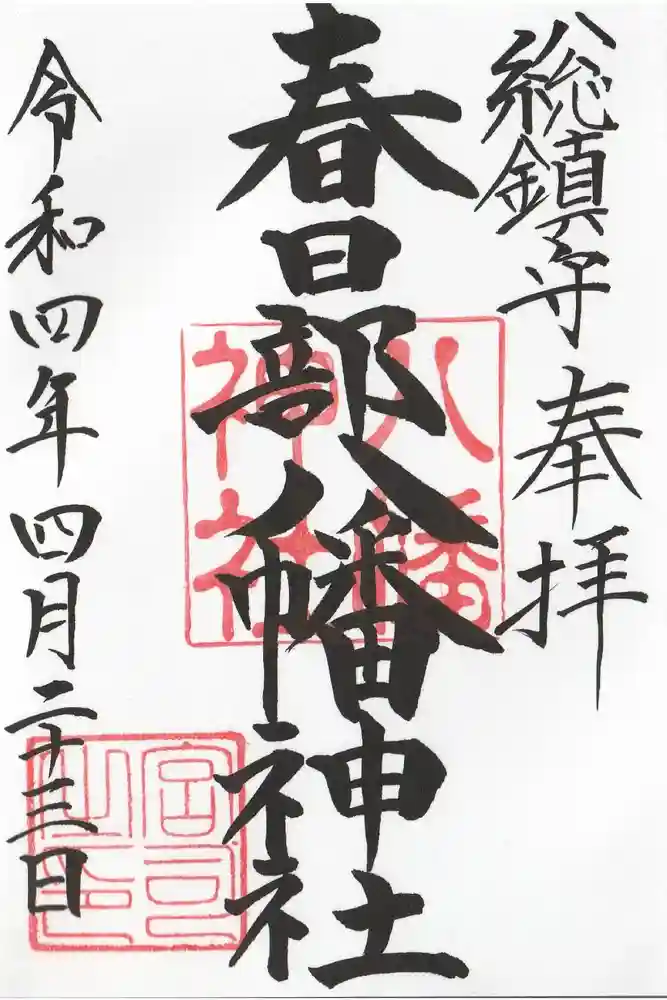 総鎮守 奉拝
春日部八幡神社
八幡
神社
令和四年四月二十三日
宮司
之印